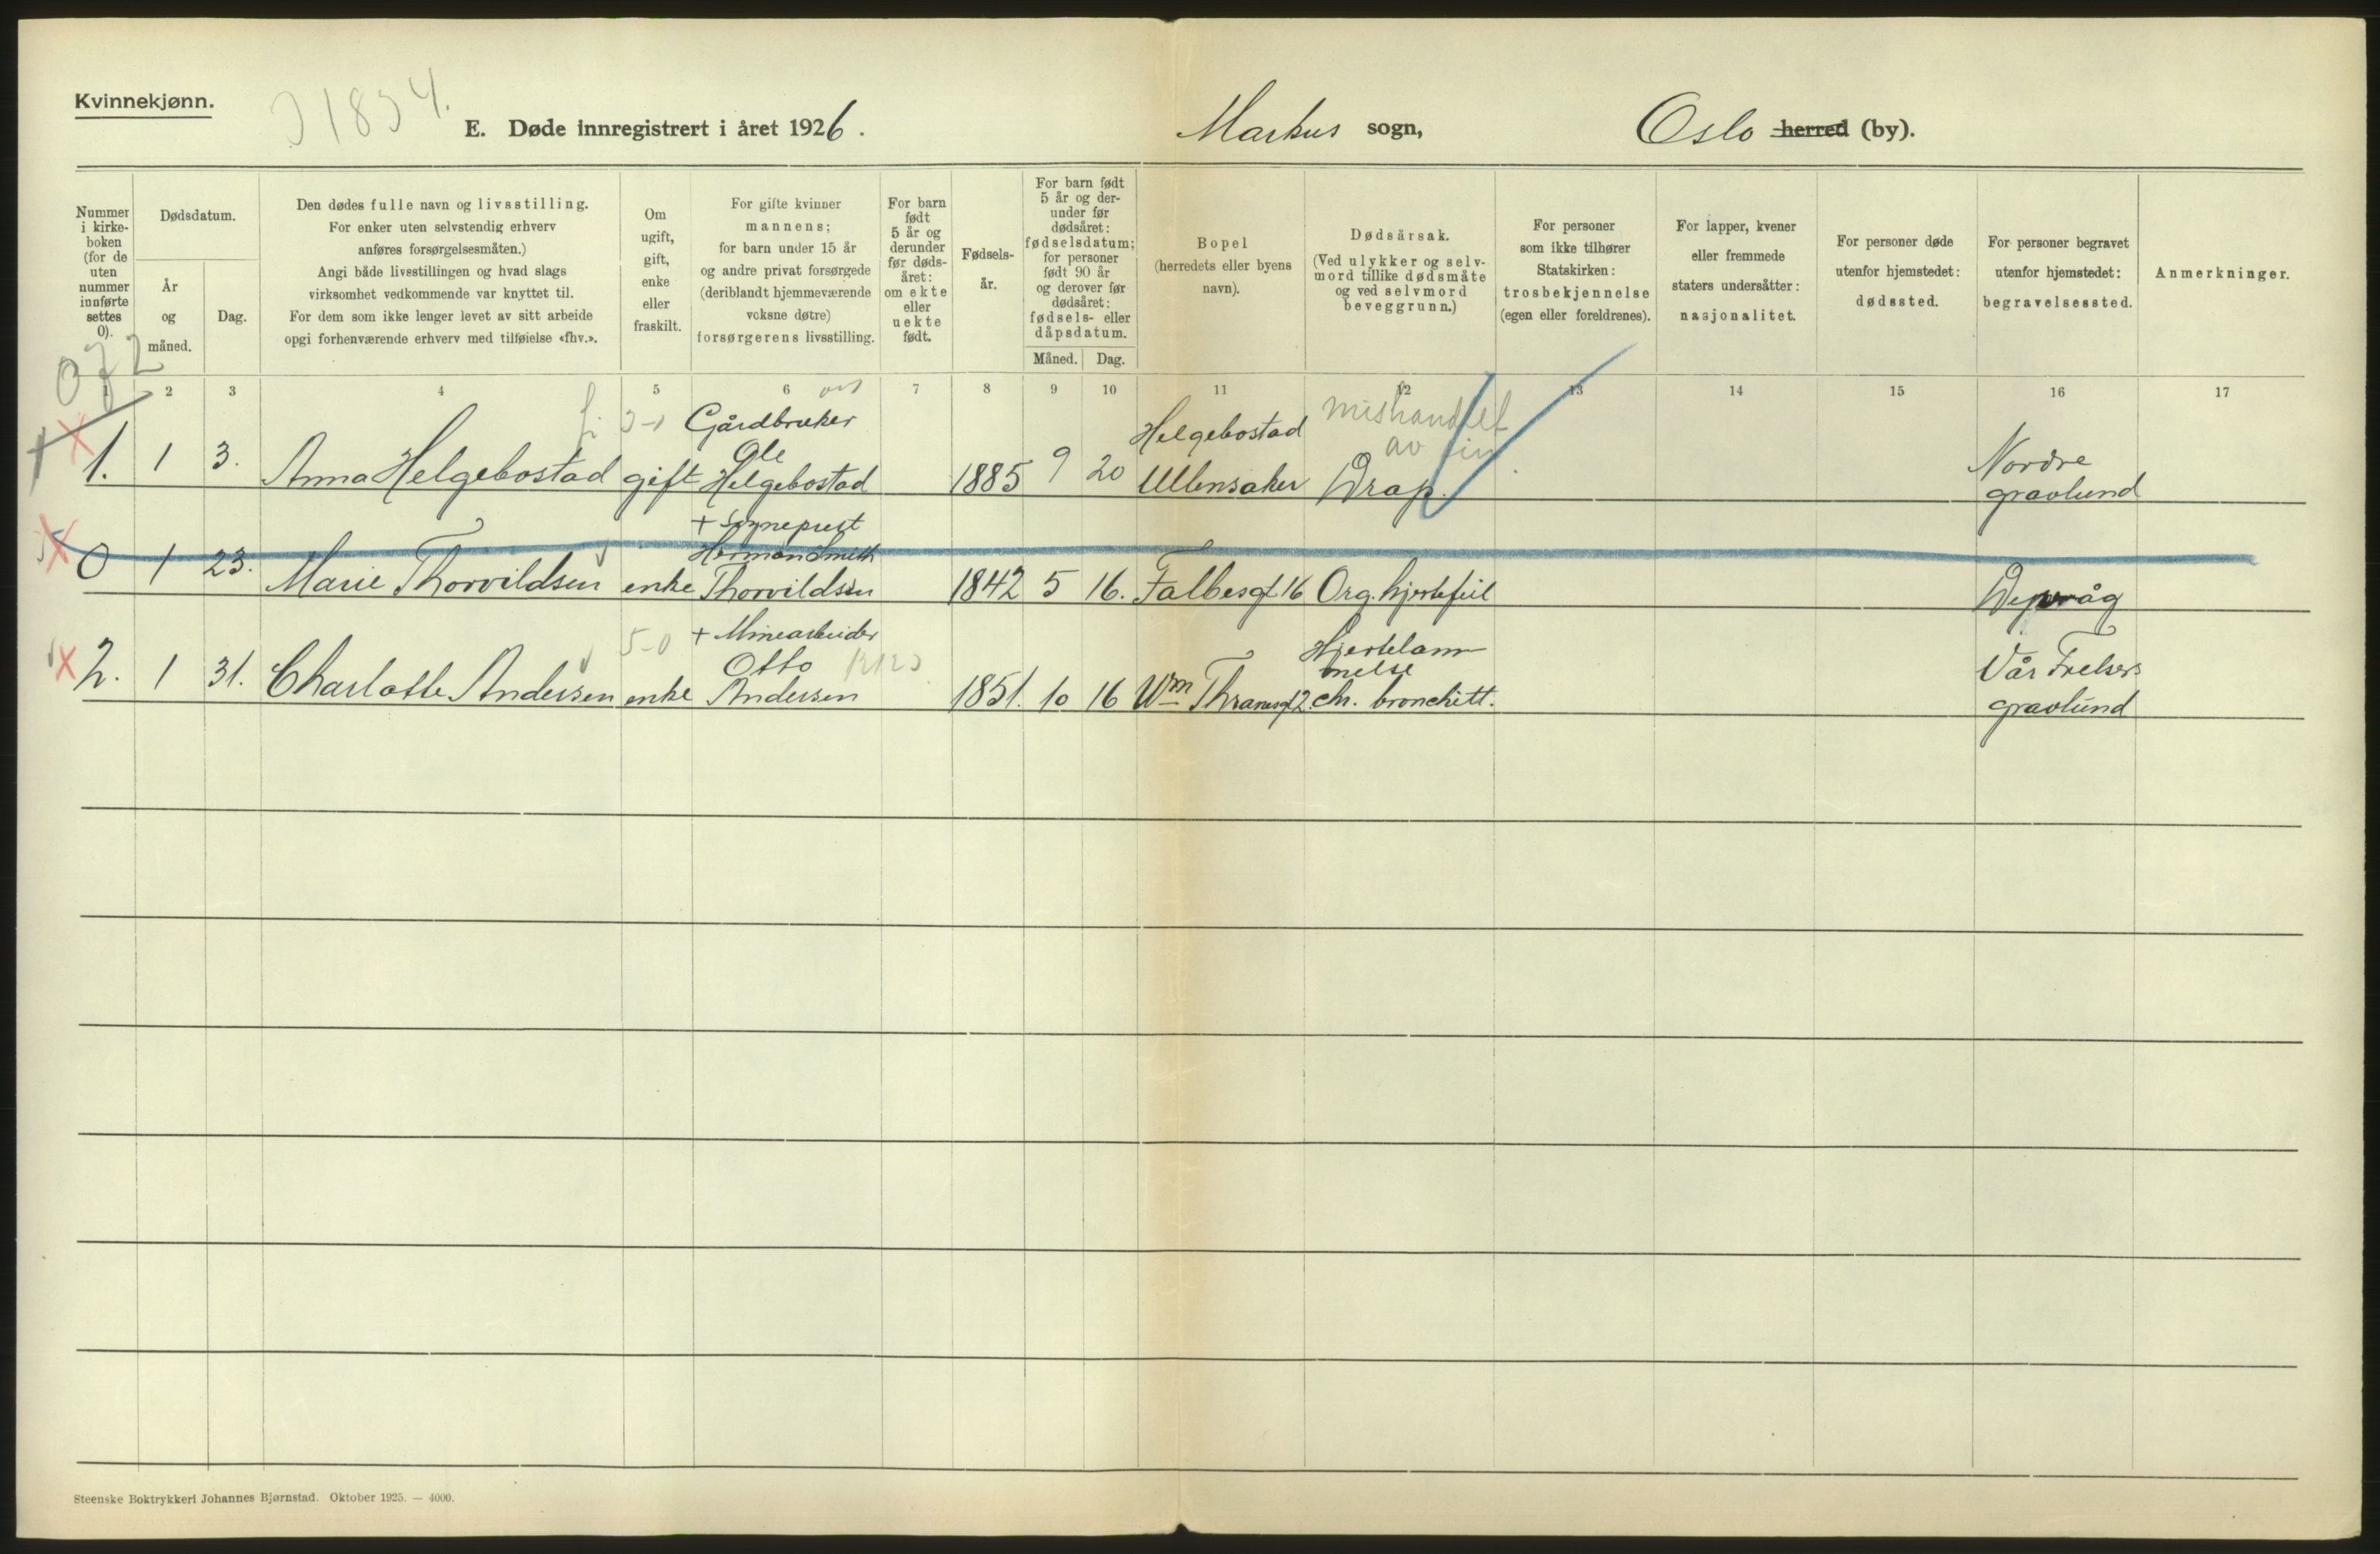 Kvinnekjønn.
E. Døde innregistrert i året 1926.
Markus sogn,
Oslo herred (by).
Nummer
i kirke-
boken
(for de
uten
nummer
innførte
settes
0).
Dødsdatum.
År
og
måned.
Dag.
Den dødes fulle navn og livsstilling.
For enker uten selvstendig erhverv
anføres forsørgelsesmåten.)
Angi både livsstillingen og hvad slags
virksomhet vedkommende var knyttet til.
For dem som ikke lenger levet av sitt arbeide
opgi forhenværende erhverv med tilføielse «fhv.».
Om
ugift,
gift,
enke
eller
fraskilt.
For gifte kvinner
mannens;
for barn under 15 år
og andre privat forsørgede
(deriblandt hjemmeværende
voksne døtre)
forsørgerens livsstilling.
For barn
født
5 år og
derunder
før døds-
året:
om ekte
eller
uekte
født.
Fødsels-
år.
For barn født
5 år og der-
under før
dødsåret:
fødselsdatum;
for personer
født 90 år
og derover før
dødsåret:
fødsels- eller
dåpsdatum.
Måned. Dag.
Bopel
(herredets eller byens
navn).
Dødsårsak.
(Ved ulykker og selv-
mord tillike dødsmåte
og ved selvmord
beveggrunn.)
For personer
som ikke tilhører
Statskirken:
trosbekjennelse
(egen eller foreldrenes).
For lapper, kvener
eller fremmede
staters undersåtter:
nasjonalitet.
For personer døde
utenfor hjemstedet:
dødssted.
For personer begravet
utenfor hjemstedet:
begravelsessted.
Anmerkninger.
1 2 3 4 5 6 7 8 9 10 11 12 13 14 15 16 17
1. 1 3. Anna Helgebostad gift
Gårdbruker
Ole
Helgebostad
1885 9 20
Helgebostad
Ullensaker
mishandlet
av
Drap.
Nordre
gravlund
0 1 23. Marie Thorvildsen enke
+ Sogneprest
Herman Smith
Thorvildsen
1842 5 16. Falbesgt 16 Org. hjertefeil
2. 1 31. Charlotte Andersen enke
5-0
+ Minearbeider
Otto
Andersen
1851. 10 16 Wm Thranesgt 2.
Hjertelam-
melse
chr. bronchitt.
Vår Frelsers
gravlund
Steenske Boktrykkeri Johannes Bjørnstad. Oktober 1925. — 4000.